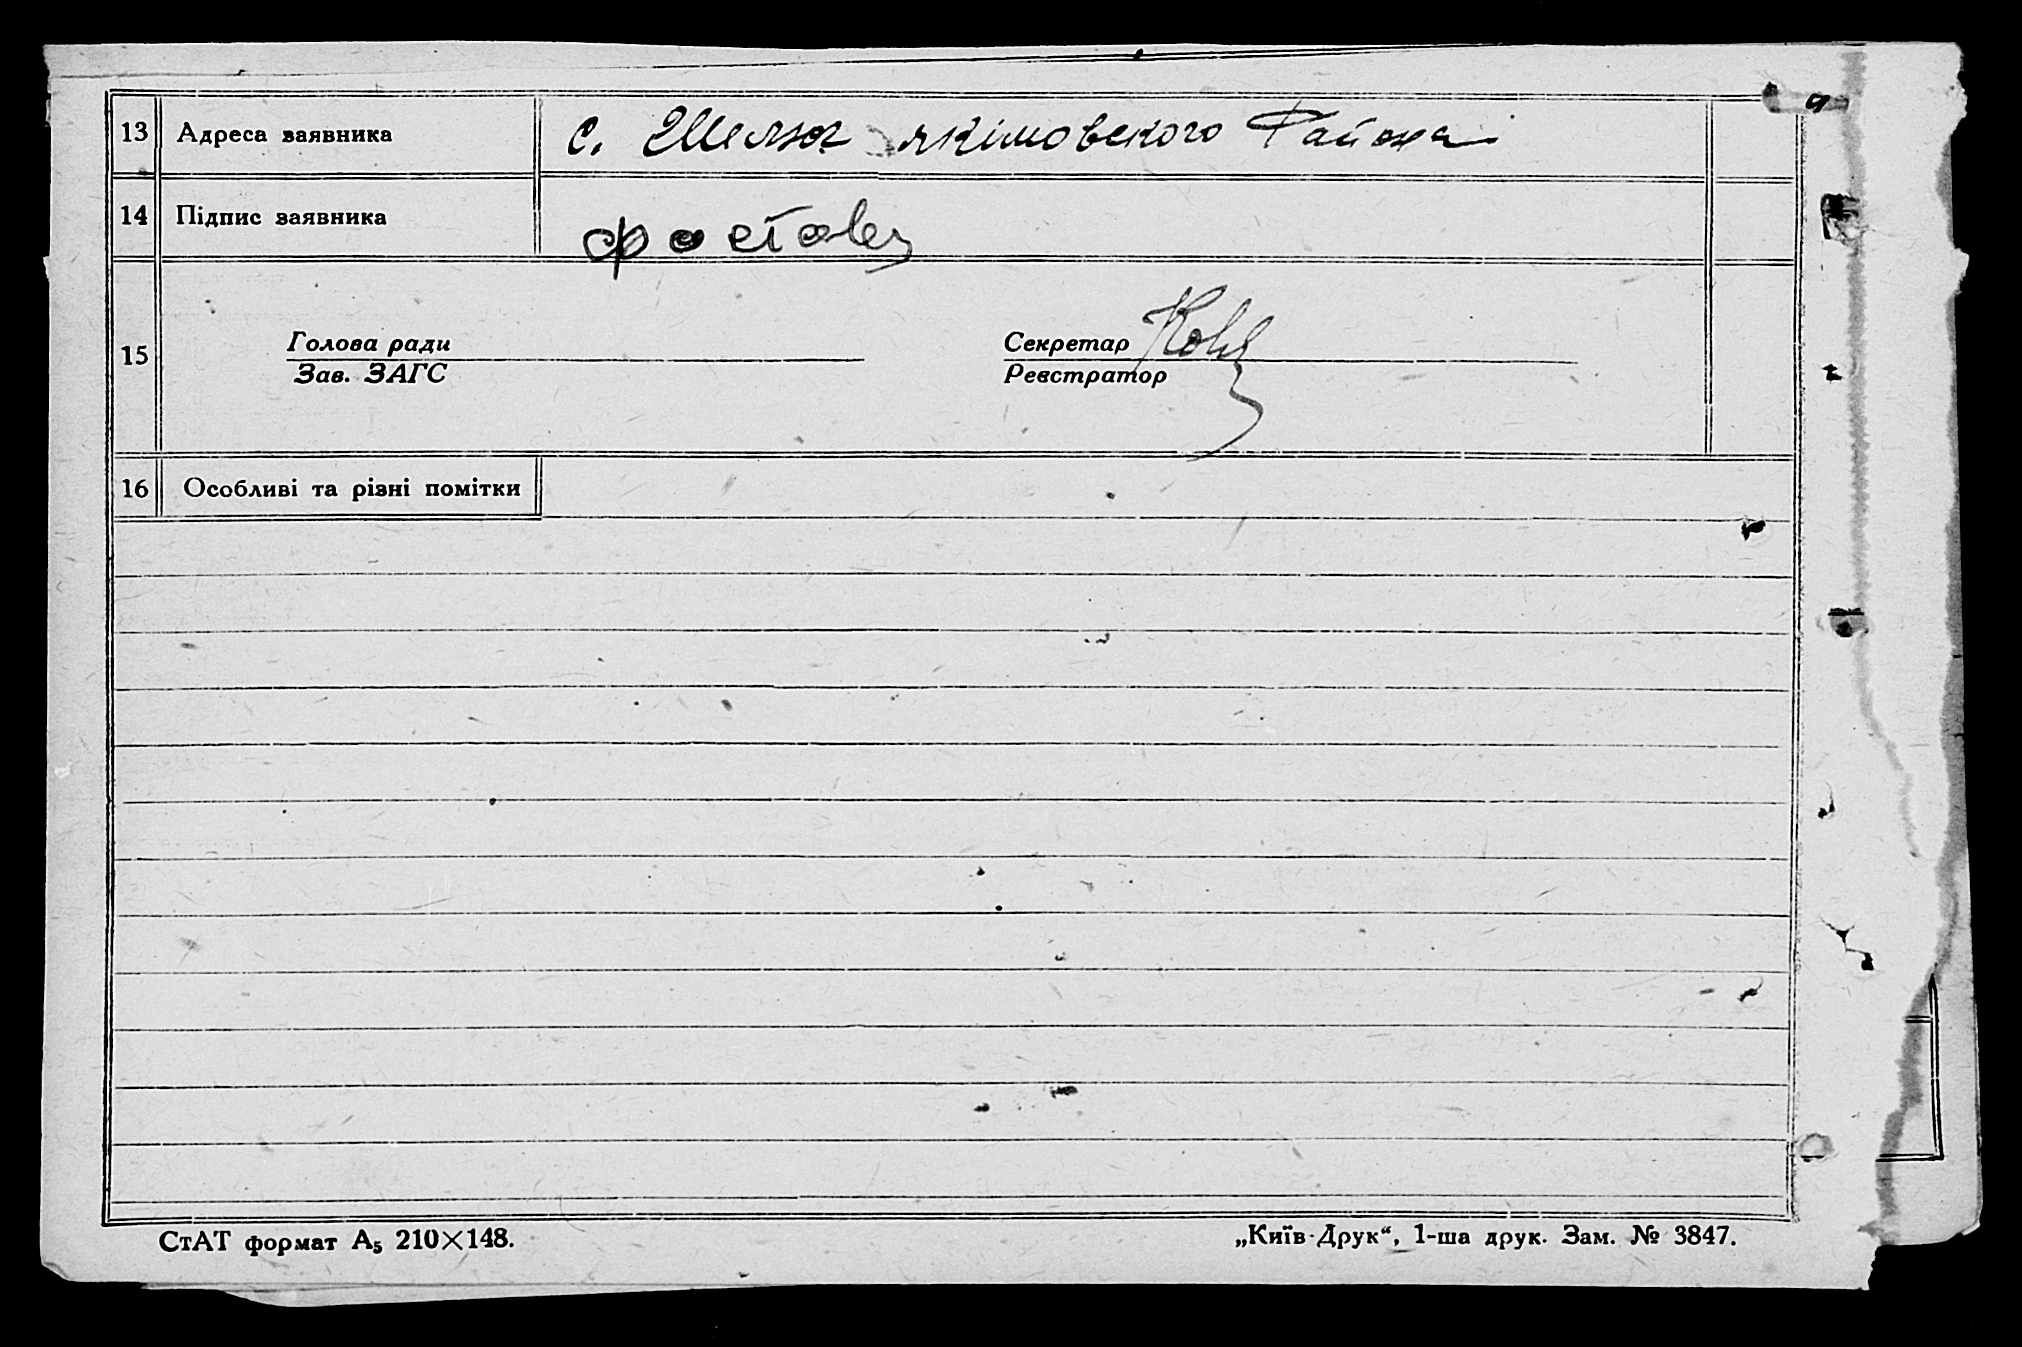 13 Адреса заявника с. Шелюг якімовского Района
14 Підпис заявника фостовец
15 Голова ради Секретар
Зав. ЗАГС Реєстратор
16 Особливі та різні помітки
СтАТ формат А₅ 210×148.
„Київ-Друк“, 1-ша друк. Зам. № 3847.